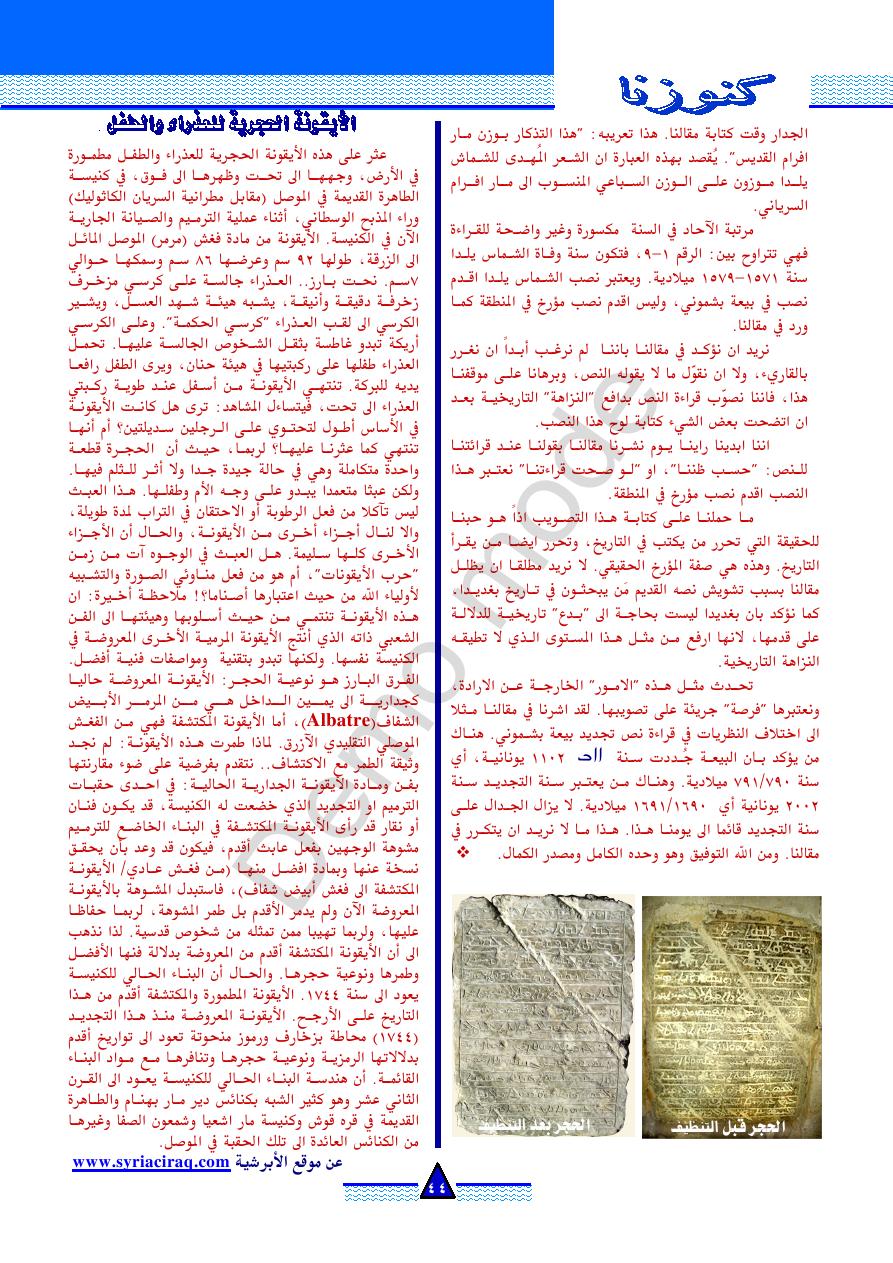 كنوزنا
الجدار وقت كتابة مقالنا. هذا تعريبه: "هذا التذكار بوزن مار
افرام القديس". يُقصد بهذه العبارة ان الشعر المُهدى للشماش
يلدا موزون على الوزن السباعي المنسوب الى مار افرام
السرياني.
مرتبة الآحاد في السنة مكسورة وغير واضحة للقراءة
فهي تتراوح بين: الرقم ١-٩، فتكون سنة وفاة الشماس يلدا
سنة ١٥٧١-١٥٧٩ ميلادية. ويعتبر نصب الشماس يلدا اقدم
نصب في بيعة بشموني، وليس اقدم نصب مؤرخ في المنطقة كما
ورد في مقالنا.
نريد ان نؤكد في مقالنا باننا لم نرغب أبداً ان نغرر
بالقاريء، ولا ان نقوّل ما لا يقوله النص، وبرهانا على موقفنا
هذا، فاننا نصوّب قراءة النص بدافع "النزاهة" التاريخية بعد
ان اتضحت بعض الشيء كتابة لوح هذا النصب.
اننا ابدينا راينا يوم نشرنا مقالنا بقولنا عند قرائتنا
للنص: "حسب ظننا"، او "لو صحت قراءتنا" نعتبر هذا
النصب اقدم نصب مؤرخ في المنطقة.
ما حملنا على كتابة هذا التصويب اذاً هو حبنا
للحقيقة التي تحرر من يكتب في التاريخ، وتحرر ايضا من يقرأ
التاريخ. وهذه هي صفة المؤرخ الحقيقي. لا نريد مطلقا ان يظل
مقالنا بسبب تشويش نصه القديم مَن يبحثون في تاريخ بغديدا،
كما نؤكد بان بغديدا ليست بحاجة الى "بدع" تاريخية للدلالة
على قدمها، لانها ارفع من مثل هذا المستوى الذي لا تطيقه
النزاهة التاريخية.
تحدث مثل هذه "الامور" الخارجة عن الارادة،
ونعتبرها "فرصة" جريئة على تصويبها. لقد اشرنا في مقالنا مثلا
الى اختلاف النظريات في قراءة نص تجديد بيعة بشموني. هناك
من يؤكد بان البيعة جُددت سنة ١١٠٢ يونانية، أي
سنة ٧٩١/٧٩٠ ميلادية. وهناك من يعتبر سنة التجديد سنة
٢٠٠٢ يونانية أي ١٦٩١/١٦٩٠ ميلادية. لا يزال الجدال على
سنة التجديد قائما الى يومنا هذا. هذا ما لا نريد ان يتكرر في
مقالنا. ومن الله التوفيق وهو وحده الكامل ومصدر الكمال. ❖
الحجر قبل التنظيف
الحجر بعد التنظيف
الأيقونة الحجرية للعذراء والطفل .
عثر على هذه الأيقونة الحجرية للعذراء والطفل مطمورة
في الأرض، وجهها الى تحت وظهرها الى فوق، في كنيسة
الطاهرة القديمة في الموصل (مقابل مطرانية السريان الكاثوليك)
وراء المذبح الوسطاني، أثناء عملية الترميم والصيانة الجارية
الآن في الكنيسة. الأيقونة من مادة فغش (مرمر) الموصل المائل
الى الزرقة، طولها ٩٢ سم وعرضها ٨٦ سم وسمكها حوالي
٧سم. نحت بارز.. العذراء جالسة على كرسي مزخرف
زخرفة دقيقة وأنيقة، يشبه هيئة شهد العسل، ويشير
الكرسي الى لقب العذراء "كرسي الحكمة". وعلى الكرسي
أريكة تبدو غاطسة بثقل الشخوص الجالسة عليها. تحمل
العذراء طفلها على ركبتيها في هيئة حنان، ويرى الطفل رافعا
يديه للبركة. تنتهي الأيقونة من أسفل عند طوية ركبتي
العذراء الى تحت، فيتساءل المشاهد: ترى هل كانت الأيقونة
في الأساس أطول لتحتوي على الرجلين سديلتين؟ أم أنها
تنتهي كما عثرنا عليها؟ لربما، حيث أن الحجرة قطعة
واحدة متكاملة وهي في حالة جيدة جدا ولا أثر للثلم فيها.
ولكن عبثا متعمدا يبدو على وجه الأم وطفلها. هذا العبث
ليس تآكلا من فعل الرطوبة أو الاحتقان في التراب لمدة طويلة،
والا لنال أجزاء أخرى من الأيقونة، والحال أن الأجزاء
الأخرى كلها سليمة. هل العبث في الوجوه آت من زمن
"حرب الأيقونات"، أم هو من فعل مناوئي الصورة والتشبيه
لأولياء الله من حيث اعتبارها أصناما؟! ملاحظة أخيرة: ان
هذه الأيقونة تنتمي من حيث أسلوبها وهيئتها الى الفن
الشعبي ذاته الذي أنتج الأيقونة المرمية الأخرى المعروضة في
الكنيسة نفسها. ولكنها تبدو بتقنية ومواصفات فنية أفضل.
الفرق البارز هو نوعية الحجر: الأيقونة المعروضة حاليا
كجدارية الى يمين الداخل هي من المرمر الأبيض
الشفاف(Albatre)، أما الأيقونة المكتشفة فهي من الفغش
الموصلي التقليدي الآزرق. لماذا طمرت هذه الأيقونة: لم نجد
وثيقة الطمر مع الاكتشاف.. نتقدم بفرضية على ضوء مقارنتها
بفن ومادة الأيقونة الجدارية الحالية: في احدى حقبات
الترميم او التجديد الذي خضعت له الكنيسة، قد يكون فنان
أو نقار قد رأى الأيقونة المكتشفة في البناء الخاضع للترميم
مشوهة الوجهين بفعل عابث أقدم، فيكون قد وعد بأن يحقق
نسخة عنها وبمادة افضل منها (من فغش عادي/ الأيقونة
المكتشفة الى فغش أبيض شفاف)، فاستبدل المشوهة بالأيقونة
المعروضة الآن ولم يدمر الأقدم بل طمر المشوهة، لربما حفاظا
عليها، ولربما تهيبا ممن تمثله من شخوص قدسية. لذا نذهب
الى أن الأيقونة المكتشفة أقدم من المعروضة بدلالة فنها الأفضل
وطمرها ونوعية حجرها. والحال أن البناء الحالي للكنيسة
يعود الى سنة ١٧٤٤. الأيقونة المطمورة والمكتشفة أقدم من هذا
التاريخ على الأرجح. الأيقونة المعروضة منذ هذا التجديد
(١٧٤٤) محاطة بزخارف ورموز منحوتة تعود الى تواريخ أقدم
بدلالاتها الرمزية ونوعية حجرها وتنافرها مع مواد البناء
القائمة. أن هندسة البناء الحالي للكنيسة يعود الى القرن
الثاني عشر وهو كثير الشبه بكنائس دير مار بهنام والطاهرة
القديمة في قره قوش وكنيسة مار اشعيا وشمعون الصفا وغيرها
من الكنائس العائدة الى تلك الحقبة في الموصل.
عن موقع الأبرشية www.syriaciraq.com
٤٤
Demo mode